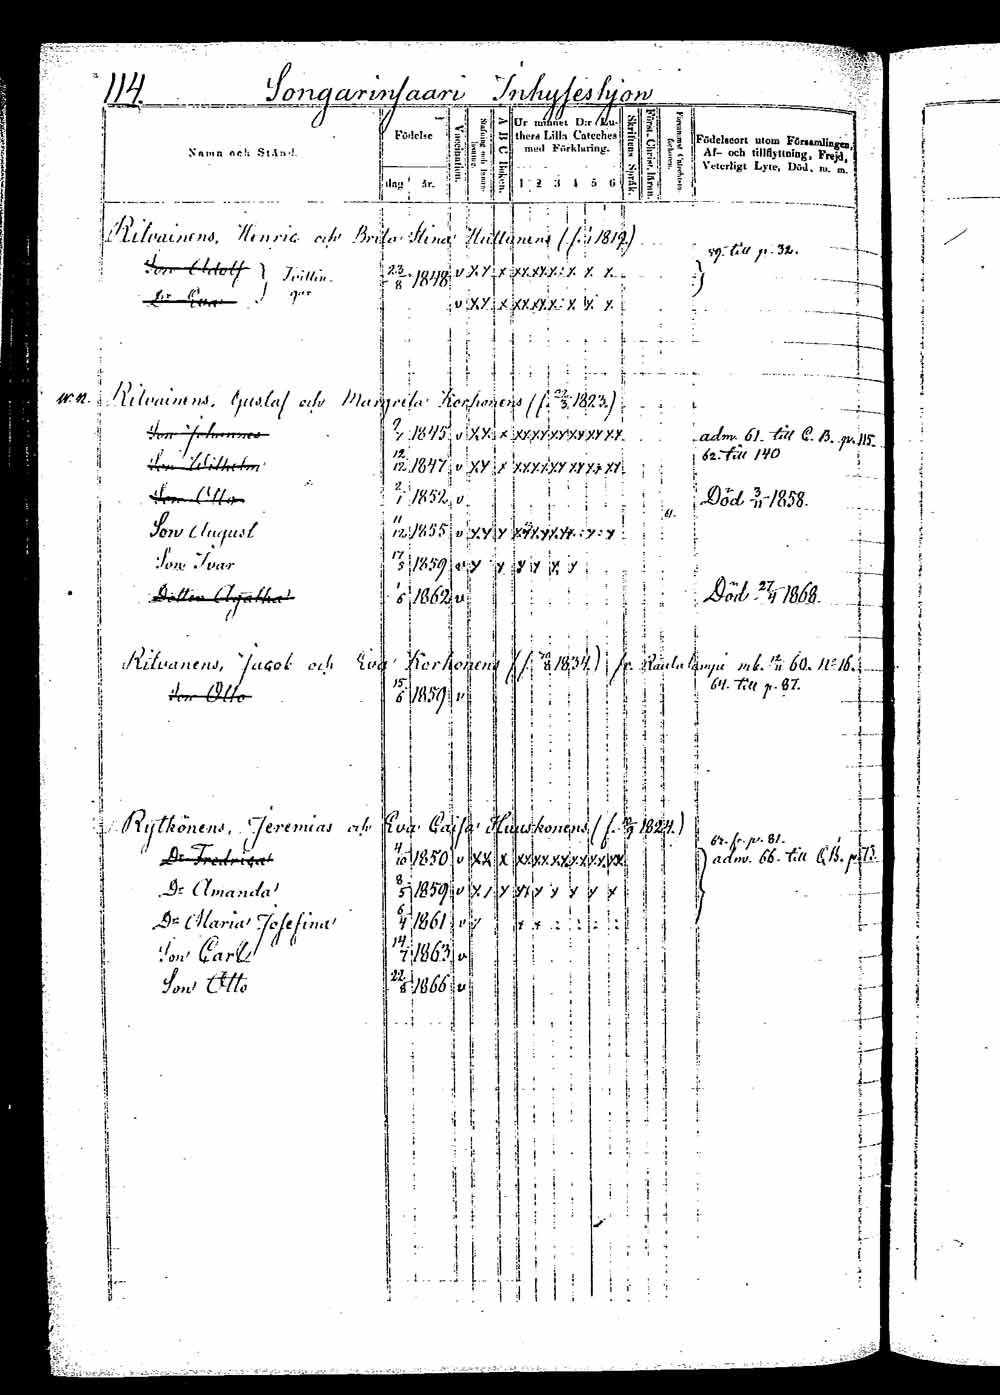 114. Songarinsaari Inhyseshjon
Namn och Stånd.
Födelse
dag år.
Vaccination.
A B C Boken.
Ur minnet D:r Lu-
thers Lilla Cateches
med Förklaring.
1 2 3 4 5 6
Skriftens Språk.
Födelseort utom Församlingen,
Af- och tillflyttning, Frejd,
Veterligt Lyte, Död, m. m.
Ritvainens, Henric och Brita Stina Huttunens (f. 1819)
59. till p. 32.
Son Adolf } Tvillin- 23/8 1848 v x x x x x x x x x x x
Dr Eva } gar v x x x x x x x x x x
Ritvainens, Gustaf och Margreta Korhonens (f. 22/3 1823)
Son Johannes 9/1 1845 v x x x x x x x x x x x adm. 61. till C. B. p. 115.
Son Wilhelm 12/12 1847 v x x x x x x x x x x x 62. till 140
Son Otto 2/1 1852 v Död 3/11 1858.
61.
Son August 11/12 1855 v x x x x x x x x
Son Ivar 17/5 1859 v x x x x x x
Dotter Agatha 1/6 1862 v Död 27/4 1868.
Ritvanens, Jacob och Eva Korhonens (f. 20/8 1834.) fr. Rautalampi mb. 12/11 60. No 16.
Son Otto 15/6 1859 v 64. till p. 87.
Rytkönens, Jeremias och Eva Caisa Huuskonens (f. 1824.)
62. fr. p. 81.
Dr Fredrica 4/10 1850 v x x x x x x x x x x x adm. 66. till C.B. p. 73.
Dr Amanda 8/5 1859 v x x x x x x x x x
Dr Maria Josefina 6/4 1861 v x x x
Son Carl 14/7 1863 v
Son Otto 22/8 1866 v